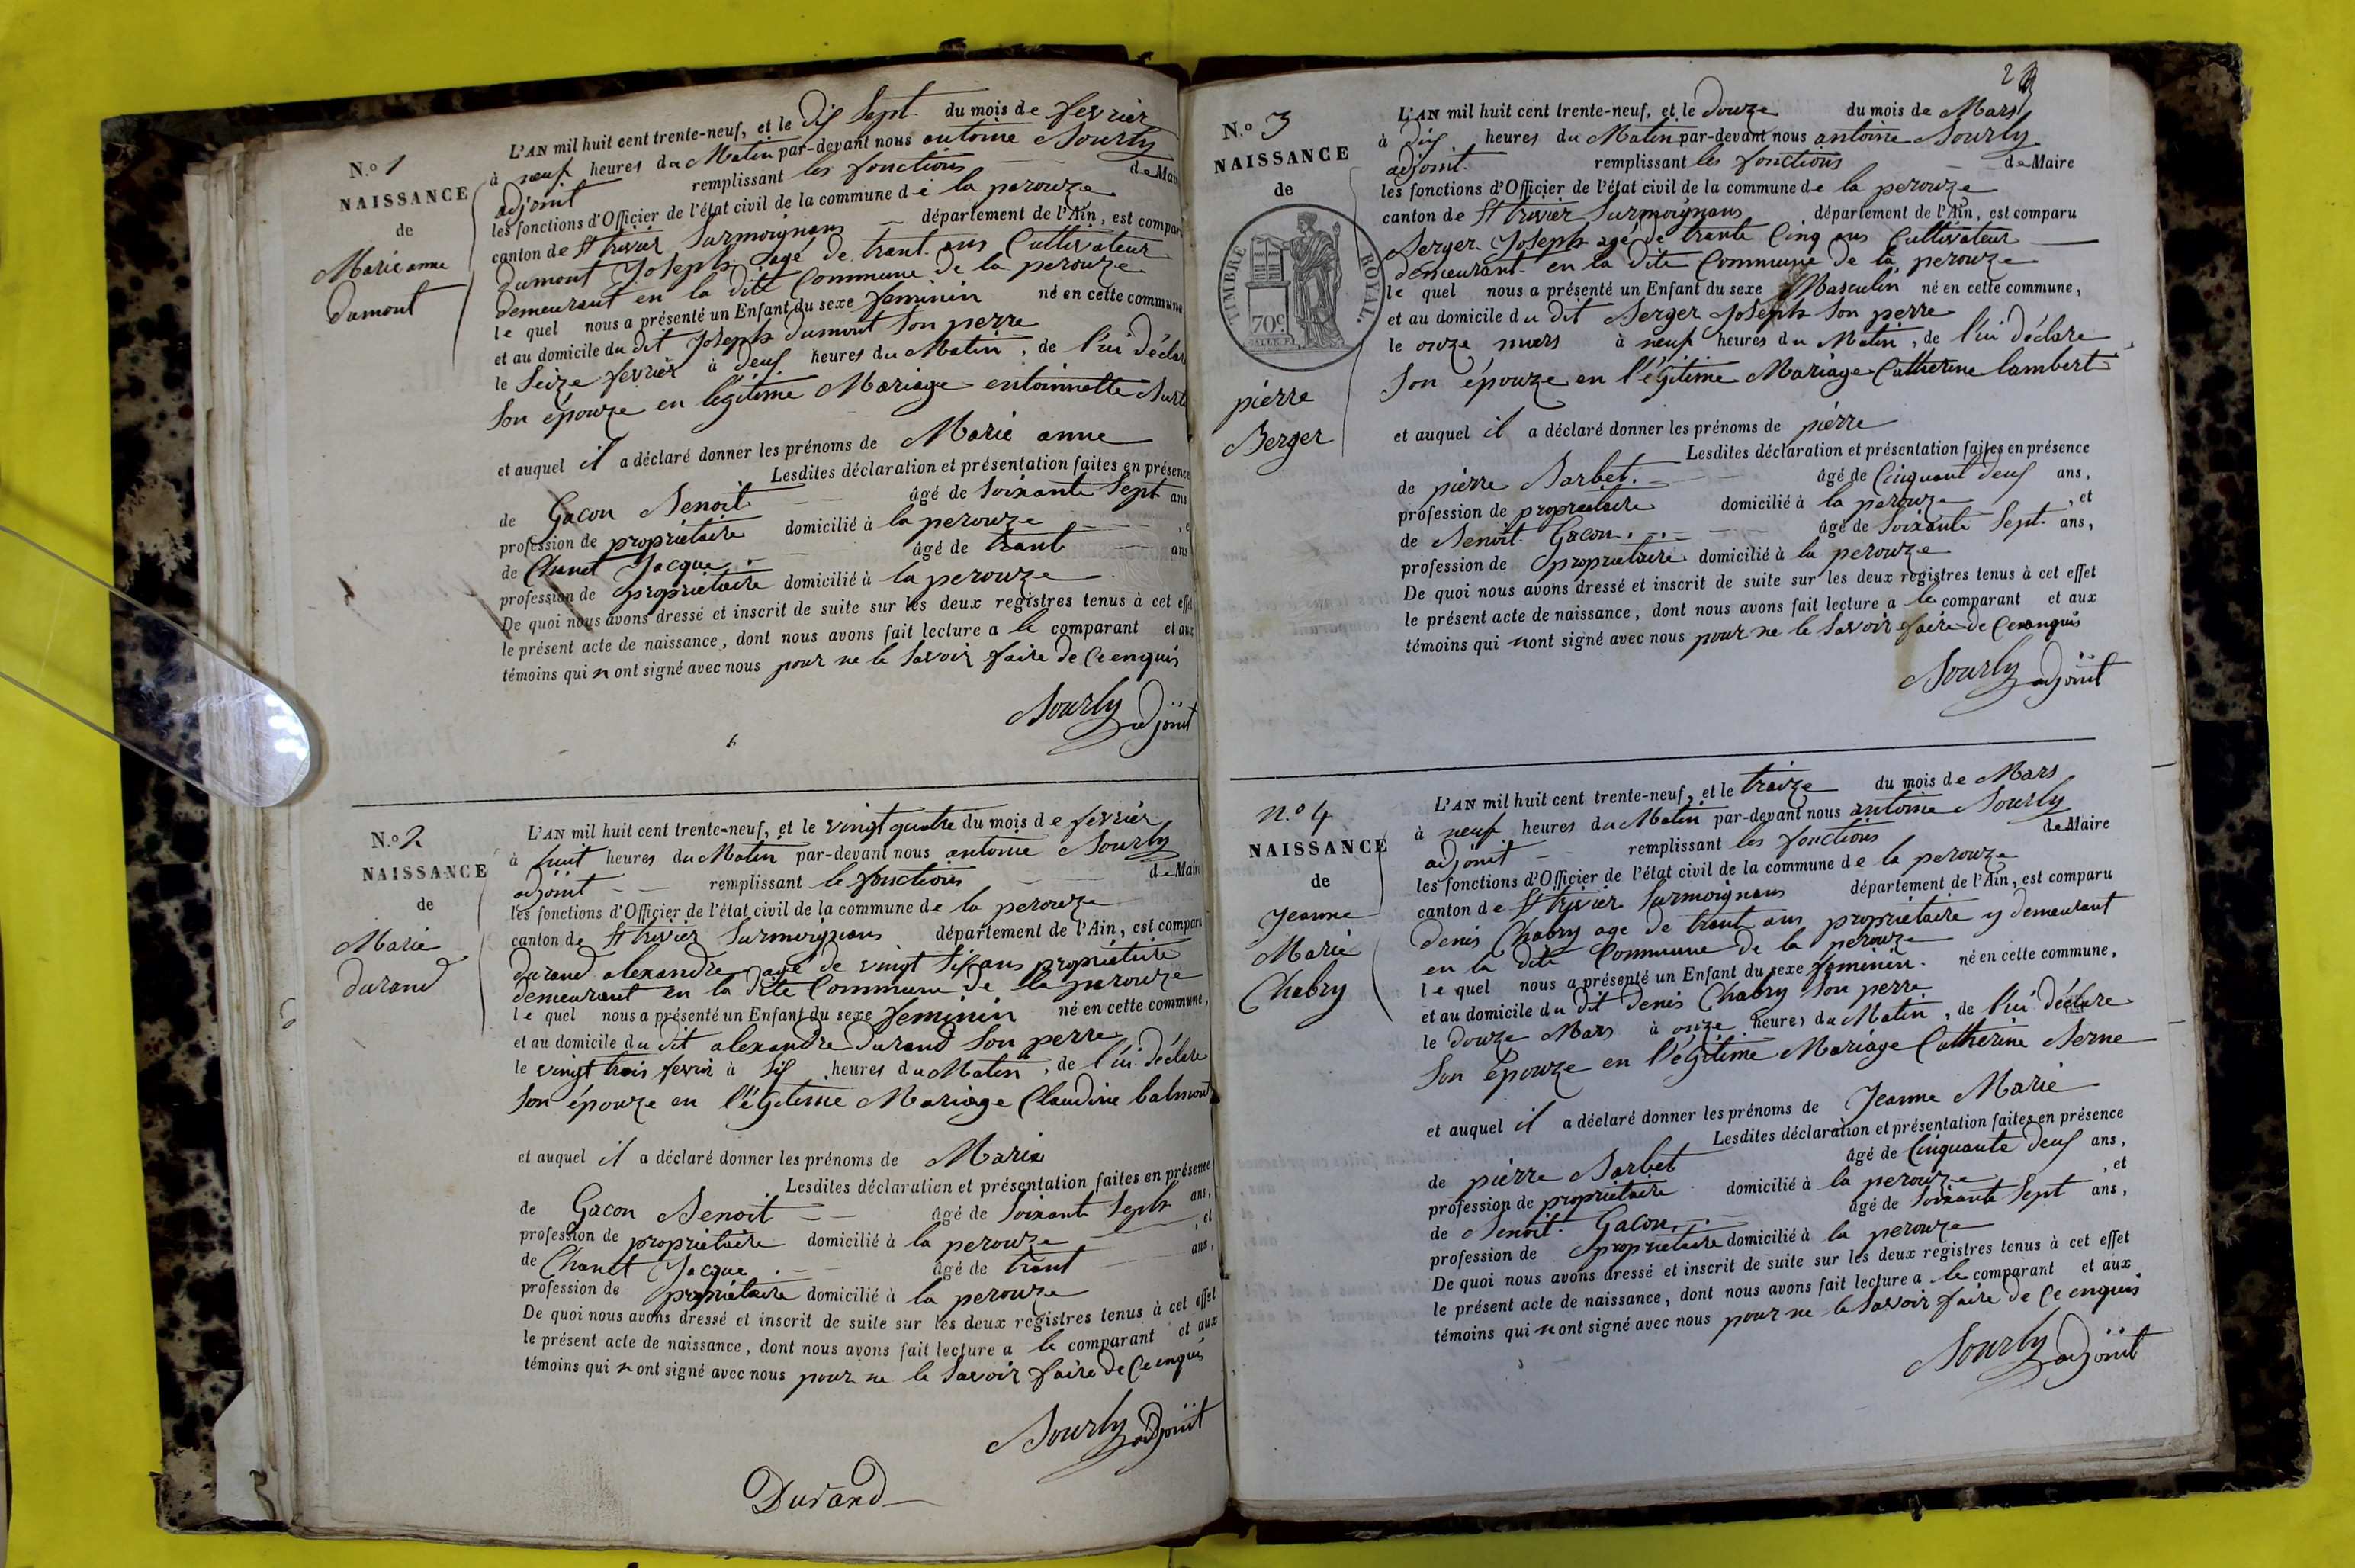 N.º 1
NAISSANCE
de
Marie anne
dumont
L'AN mil huit cent trente-neuf, et le dix Sept du mois de fevrier
à neuf heures du Matin par-devant nous antoine Bourly
adjoint remplissant les fonctions de Mai
les fonctions d'Officier de l'état civil de la commune de la perouze
canton de St trivier Surmoignans département de l'Ain, est compar
dumont Joseph agé de trant ans Cultivateur
demeurant en la dite Commune de la perouze
le quel nous a présenté un Enfant du sexe feminin né en cette commune
et au domicile du dit Joseph dumont Son perre
le Seize fevrier à deux heures du Matin, de l'ui déclar
Son épouze en légitime Mariage entoinnette
et auquel il a déclaré donner les prénoms de Marie anne
Lesdites déclaration et présentation faites en présence
de Gacon Benoit âgé de Soixante Sept ans
profession de propriétaire domicilié à la perouze , e
de Chanet Jacque âgé de trant ans
profession de propriétaire domicilié à la perouze
De quoi nous avons dressé et inscrit de suite sur les deux registres tenus à cet effet
le présent acte de naissance, dont nous avons fait lecture a le comparant et aux
témoins qui n ont signé avec nous pour ne le Savoir faire de Ce enquis
Bourly adjoint
N.º 2
NAISSANCE
de
Marie
durand
L'AN mil huit cent trente-neuf, et le vingt quatre du mois de fevrier
à huit heures du Matin par-devant nous antoine Bourly
adjoint remplissant le fonctions de Mair
les fonctions d'Officier de l'état civil de la commune de la perouze
canton de St trivier Surmoignans département de l'Ain, est comparu
durand alexandre agé de vingt Six ans propriétaire
demeurant en la dite Commune de la perouze
le quel nous a présenté un Enfant du sexe feminin né en cette commune,
et au domicile du dit alexandre durand Son perre
le vingt trois fevrir à Six heures du Matin, de l'ui déclare
Son épouze en l'égitime Mariage Claudine balmont
et auquel il a déclaré donner les prénoms de Marie
Lesdites déclaration et présentation faites en présence
de Gacon Benoit âgé de Soixante Sept ans,
profession de propriétaire domicilié à la perouze , et
de Chanet Jacque âgé de trant ans,
profession de propriétaire domicilié à la perouze
De quoi nous avons dressé et inscrit de suite sur les deux registres tenus à cet effet
le présent acte de naissance, dont nous avons fait lecture a le comparant et aux
témoins qui n ont signé avec nous pour ne le Savoir faire de Ce enquis
Bourly adjoint
Durand
2
N.º 3
NAISSANCE
de
TIMBRE ROYAL.
70c
pierre
Berger
L'AN mil huit cent trente-neuf, et le douze du mois de Mars
à dix heures du Matin par-devant nous antoine Bourly
adjoint remplissant les fonctions de Maire
les fonctions d'Officier de l'état civil de la commune de la perouze
canton de St trivier Surmoignans département de l'Ain, est comparu
Berger Joseph agé de trante Cinq ans Cultivateur
demeurant en la dite Commune de la perouze
le quel nous a présenté un Enfant du sexe Masculin né en cette commune,
et au domicile du dit Berger Joseph Son perre
le onze mars à neuf heures du Matin, de l'ui déclare
Son épouze en l'égitime Mariage Catherine lambert
et auquel il a déclaré donner les prénoms de pierre
Lesdites déclaration et présentation faites en présence
de pierre Barbet âgé de Cinquant deux ans,
profession de propriétaire domicilié à la perouze , et
de Benoit Gacon âgé de Soixante Sept ans,
profession de propriétaire domicilié à la perouze
De quoi nous avons dressé et inscrit de suite sur les deux registres tenus à cet effet
le présent acte de naissance, dont nous avons fait lecture a le comparant et aux
témoins qui n ont signé avec nous pour ne le Savoir faire de Ce enquis
Bourly adjoint
n.º 4
NAISSANCE
de
Jeanne
Marie
Chabry
L'AN mil huit cent trente-neuf, et le traize du mois de Mars
à neuf heures du Matin par-devant nous antoine Bourly
adjoint remplissant les fonctions de Maire
les fonctions d'Officier de l'état civil de la commune de la perouze
canton de St trivier Surmoignans département de l'Ain, est comparu
denis Chabry age de trant ans propriétaire y demeurant
en la dite Commune de la perouze
le quel nous a présenté un Enfant du sexe feminin né en cette commune,
et au domicile du dit denis Chabry Son perre
le douze Mars à onze heures du Matin, de l'ui déclare
Son épouze en l'égitime Mariage Catherine Berne
et auquel il a déclaré donner les prénoms de Jeanne Marie
Lesdites déclaration et présentation faites en présence
de pierre Barbet âgé de Cinquante deux ans,
profession de propriétaire domicilié à la perouze , et
de Benoit Gacon âgé de Soixante Sept ans,
profession de propriétaire domicilié à la perouze
De quoi nous avons dressé et inscrit de suite sur les deux registres tenus à cet effet
le présent acte de naissance, dont nous avons fait lecture a le comparant et aux
témoins qui n ont signé avec nous pour ne le Savoir faire de Ce enquis
Bourly adjoint